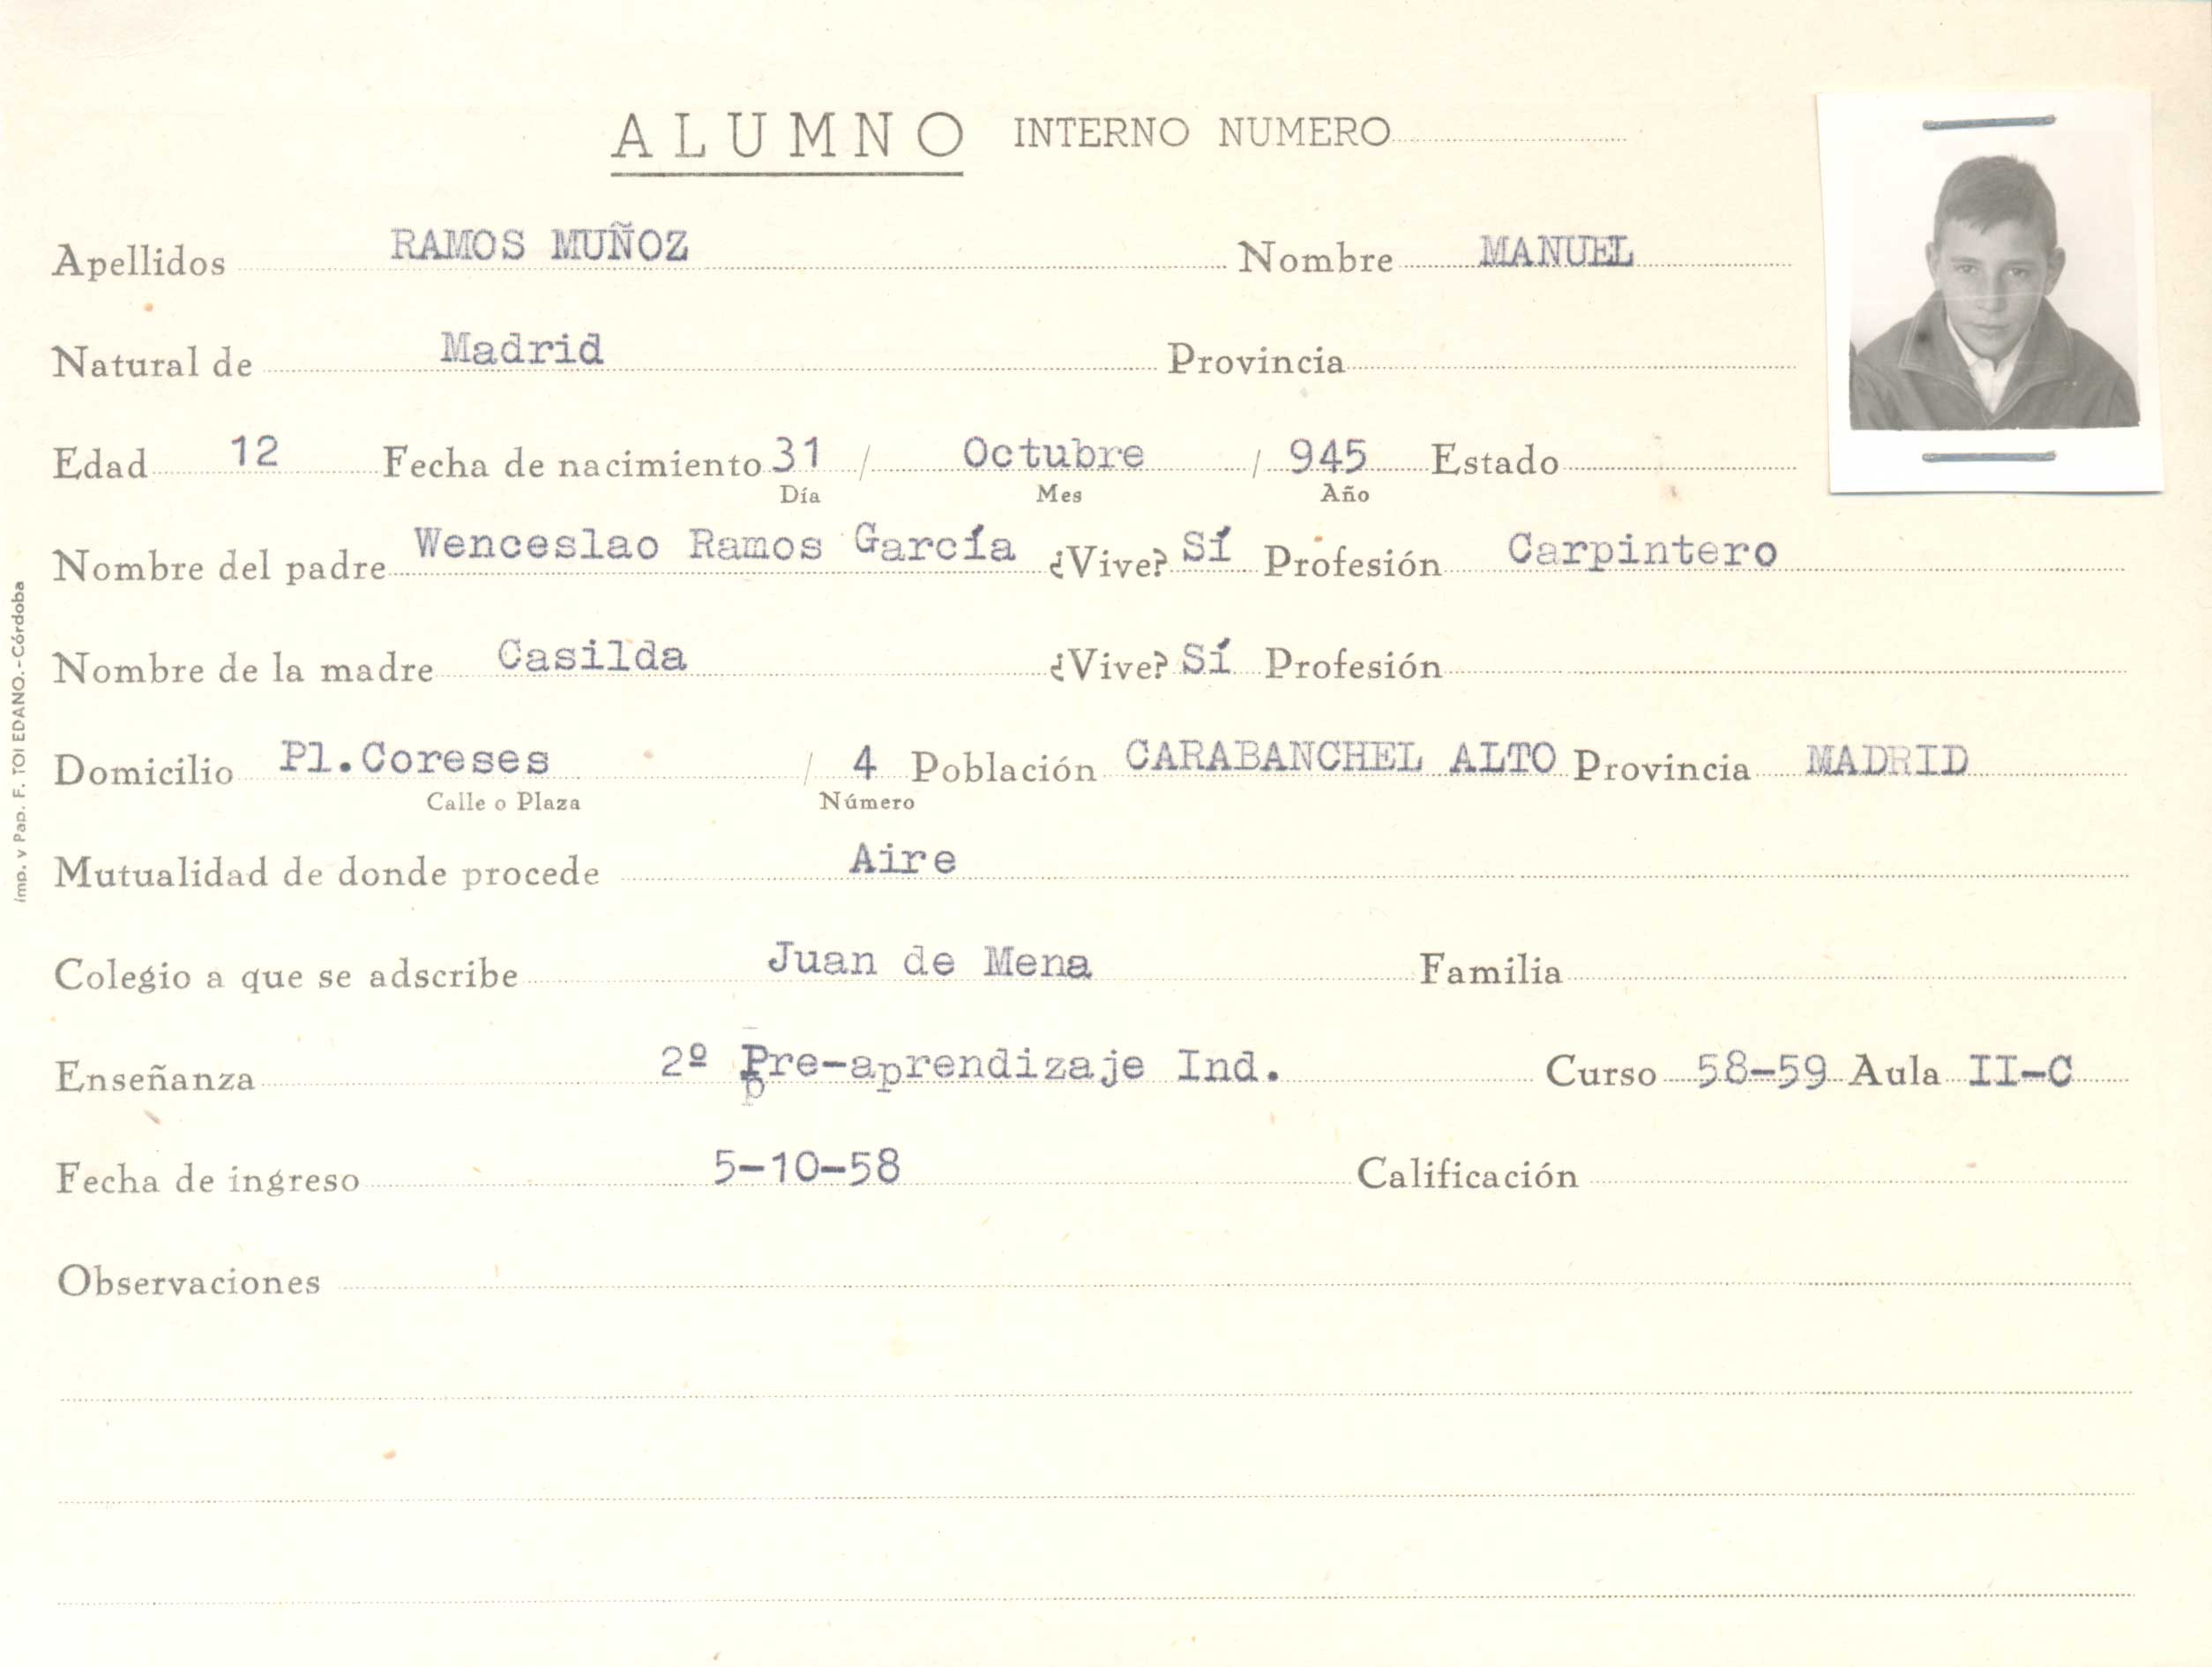 ALUMNO INTERNO NUMERO
Apellidos RAMOS MUÑOZ Nombre MANUEL
Natural de Madrid Provincia
Edad 12 Fecha de nacimiento 31 / Octubre / 945 Estado
Día Mes Año
Nombre del padre Wenceslao Ramos García ¿Vive? Sí Profesión Carpintero
Nombre de la madre Casilda ¿Vive? Sí Profesión
Domicilio Pl.Coreses / 4 Población CARABANCHEL ALTO Provincia MADRID
Calle o Plaza Número
Mutualidad de donde procede Aire
Colegio a que se adscribe Juan de Mena Familia
Enseñanza 2º Pre-aprendizaje Ind. Curso 58-59 Aula II-C
Fecha de ingreso 5-10-58 Calificación
Observaciones
Imp. y Pap. F. TOLEDANO.-Córdoba